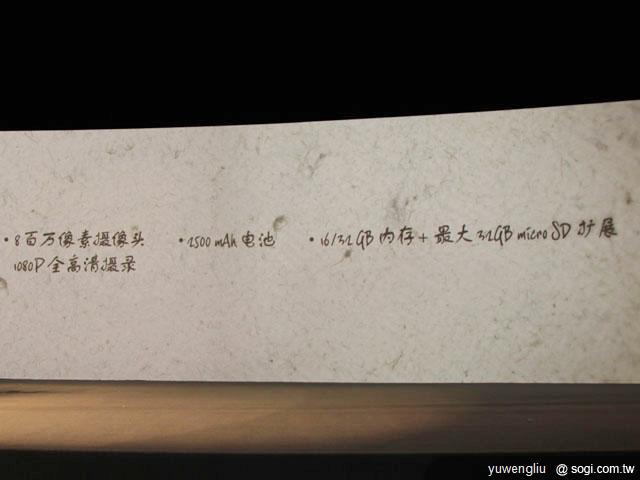 • 8百万像素摄像头
1080P 全高清摄录
• 2500 mAh 电池
• 16/32 GB 内存 + 最大 32GB micro SD 扩展
yuwengliu @ sogi.com.tw